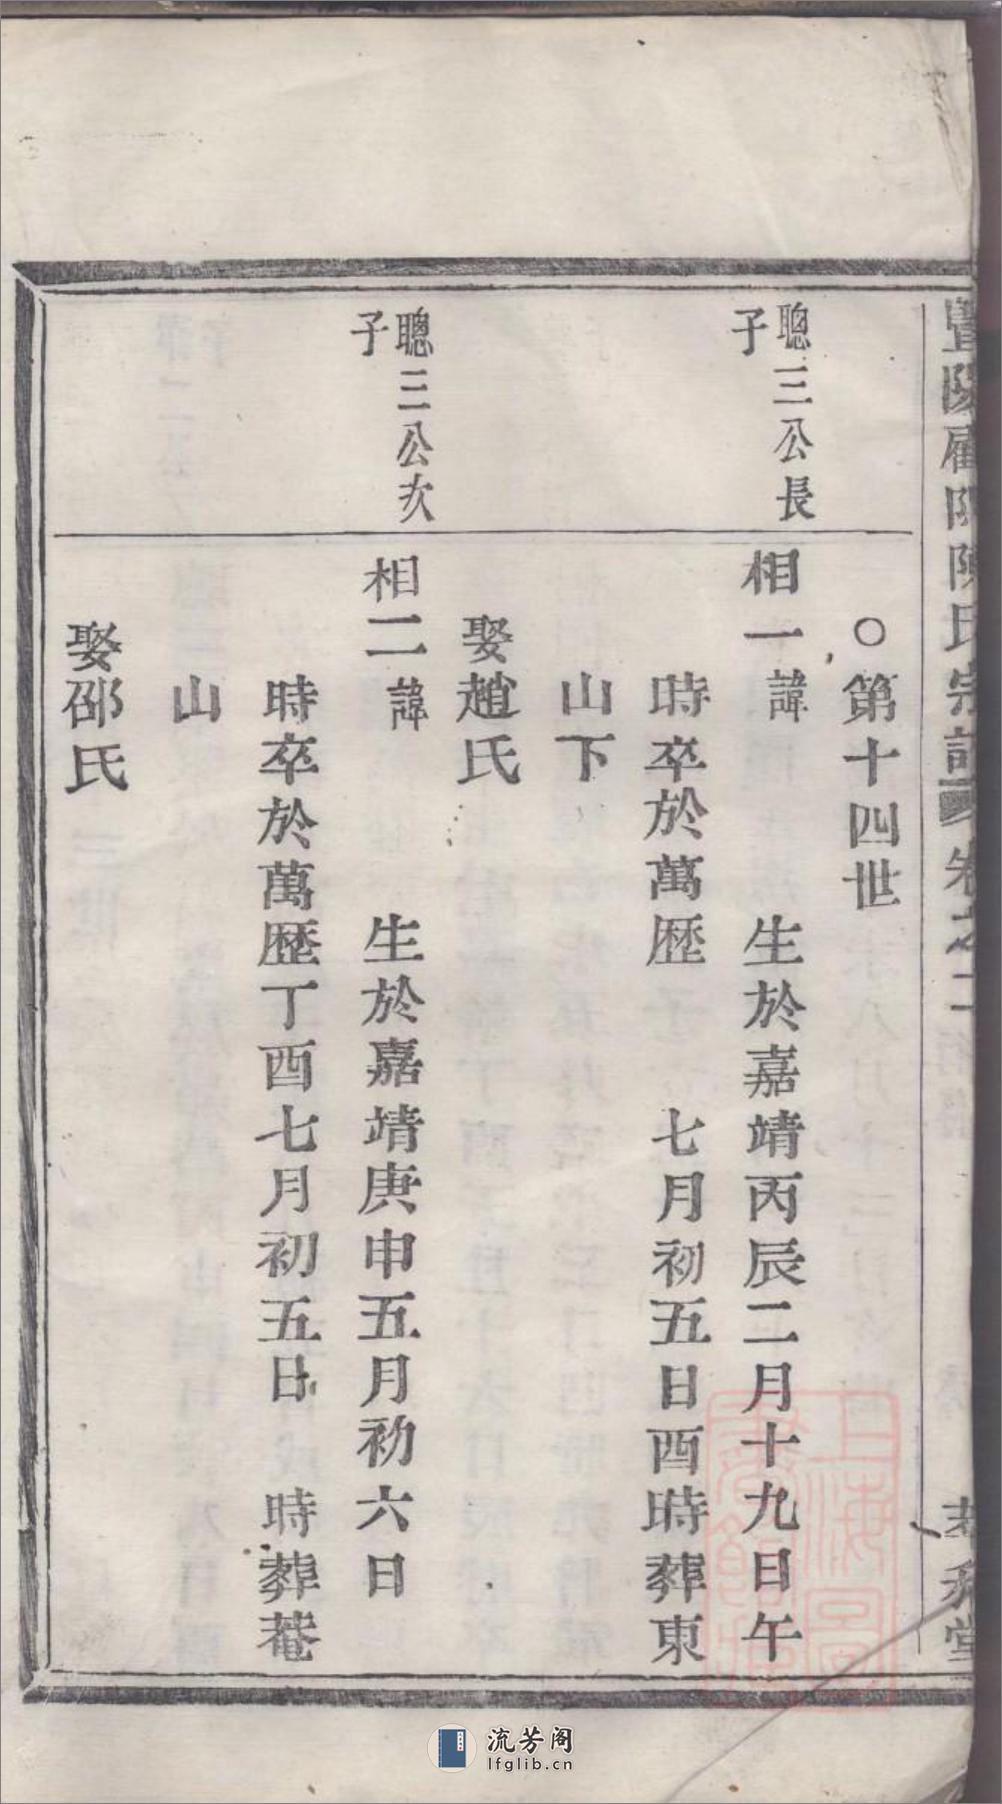 暨陽
陳氏宗譜 卷之二
堂
○第十四世
聰三公長
子
相一諱 生於嘉靖丙辰二月十九日午
時卒於萬歷 七月初五日酉時葬東
山下
娶趙氏
聰三公次
子
相二諱 生於嘉靖庚申五月初六日
時卒於萬歷丁酉七月初五日 時葬菴
山
娶邵氏
上海圖
書館藏
流芳阁
lfglib.cn